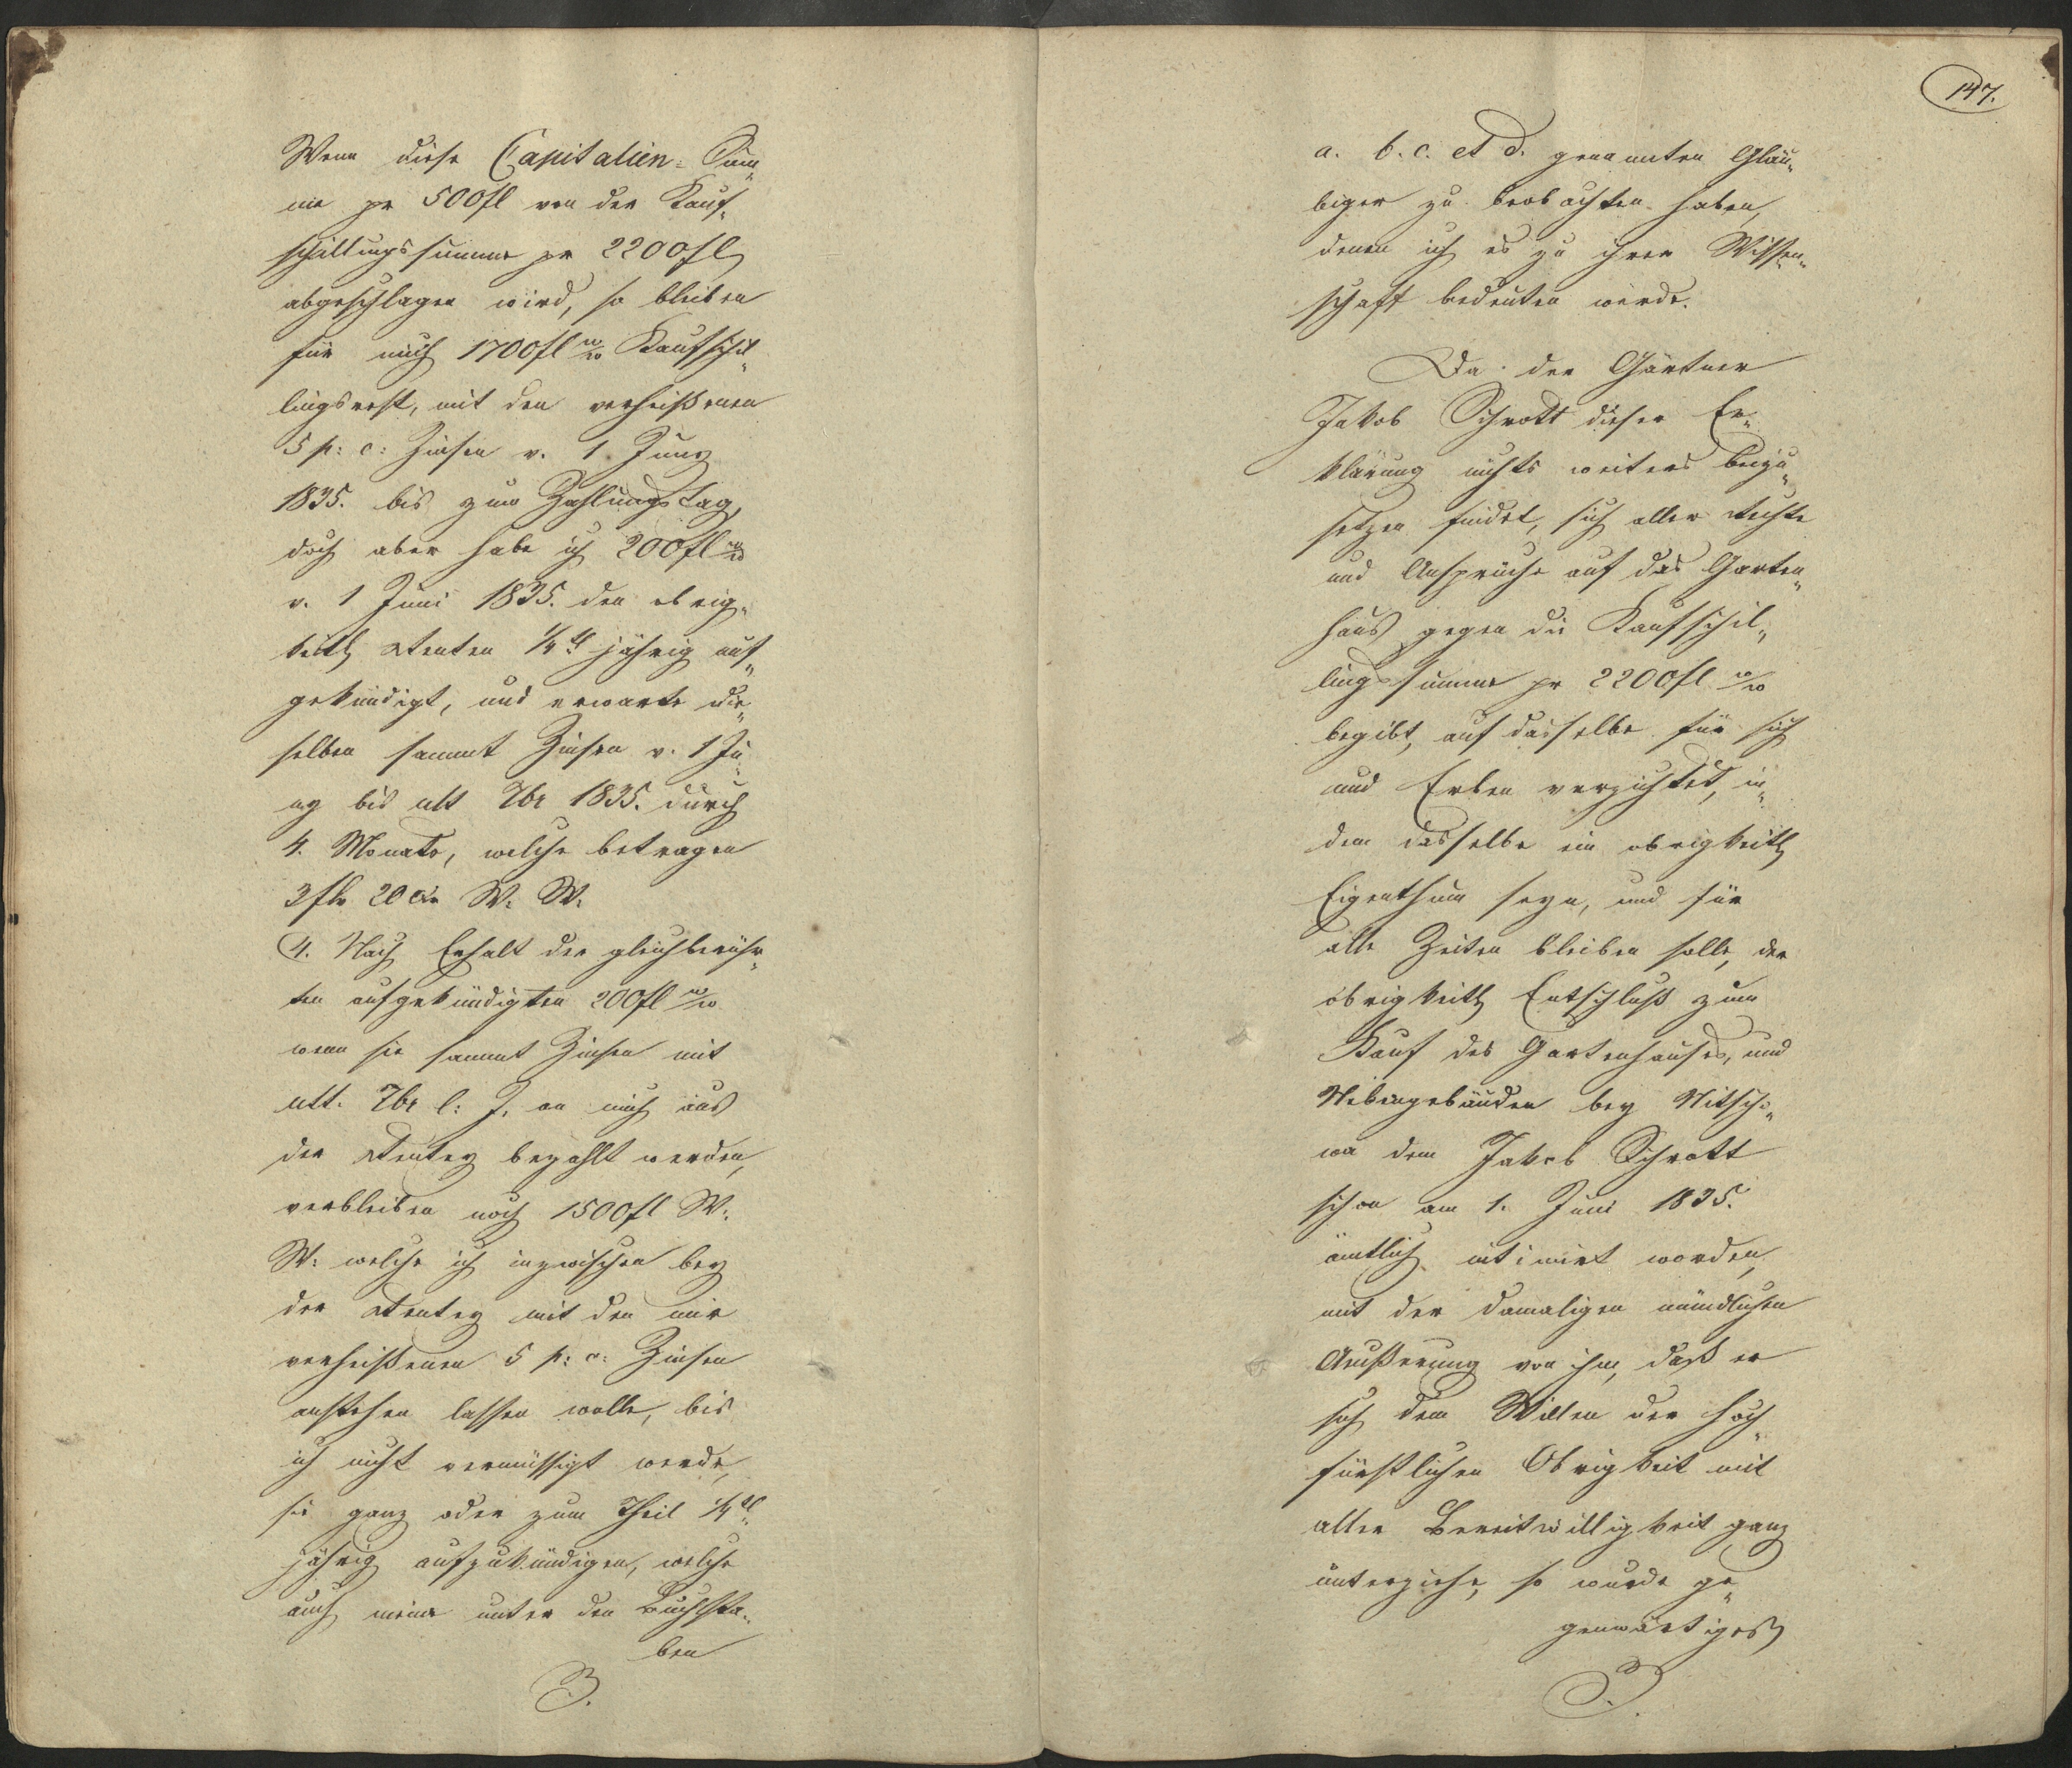 Wenn diese Capitalien-Sum-
me pr 500fl von der Kauf-
schillingssumme pr 2200fl
abgeschlagen wird, so bleiben
für mich 1700fl W/W Kaufschil-
lingsrest, mit den verheißenen
5 p: c: Zinsen v. 1. Juny
1835. bis zum Zahlungstag,
doch aber habe ich 200fl W/W
v. 1 Juni 1835. den obrig-
keitl Renten 1/4tl jährig auf-
gekündigt, und erwarte die-
selben sammt Zinsen v. 1 Ju-
ny bis ult 7br 1835. durch
4. Monate, welche betragen
3fl 20 xr W. W.
4. Nach Erhalt der gleichberühr-
ten aufgekündigten 200fl W/W
wenn sie sammt Zinsen mit
ult. 7br l: J. an mich aus
der Rentey bezahlt werden,
verbleiben noch 1500fl W:
W: welche ich inzwischen bey
der Rentey mit den mir
verheißenen 5 p: c: Zinsen
anstehen lassen wolle, bis
ich nicht vermüssigt werde,
sie ganz oder zum Theil 1/4tl
jährig aufzukündigen, welche
auch meine unter den Buchsta-
ben
147.
a. b. c. et d. genannten Gläu-
biger zu beobachten haben,
denen ich es zu ihrer Wissen-
schaft bedeuten werde.
Da der Gärtner
Jakob Schrott dieser Er-
klärung nichts weiters beizu-
setzen findet, sich aller Rechte
und Ansprüche auf das Garten-
haus gegen die Kaufschil-
lingssumme pr 2200fl W/W
begibt, auf dasselbe für sich
und Erben verzichtet, in-
dem dasselbe ein obrigkeitl
Eigenthum seyn, und für
alle Zeiten bleiben solle, der
obrigkeitl Entschluß zum
Kauf des Gartenhauses, und
Nebengebäuden bey Nitscho-
wa dem Jakob Schrott
schon am 1. Juni 1835.
ämtlich intimirt worden,
mit der damaligen mündlichen
Äußerung von ihm, daß er
sich dem Willen der hoch-
fürstlichen Obrigkeit mit
aller Bereitwilligkeit ganz
unterziehe, so wurde ge-
genwärtiges